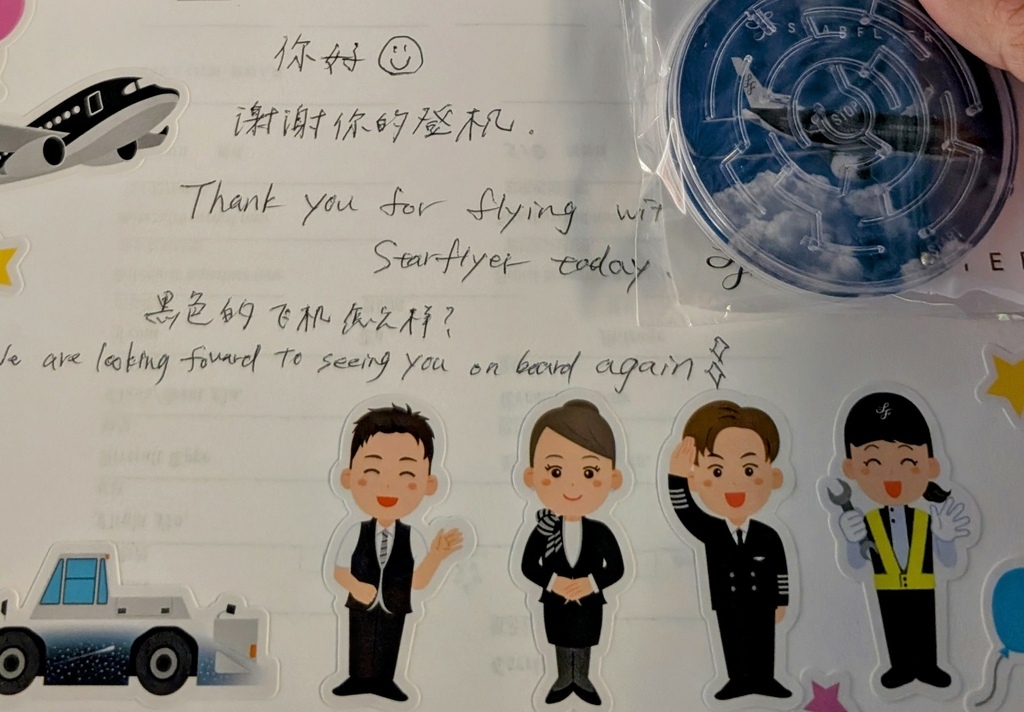 你好
谢谢你的登机.
Thank you for flying wit
Starflyer today.
黑色的飞机怎么样?
We are looking foward to seeing you on board again
STARFLYER